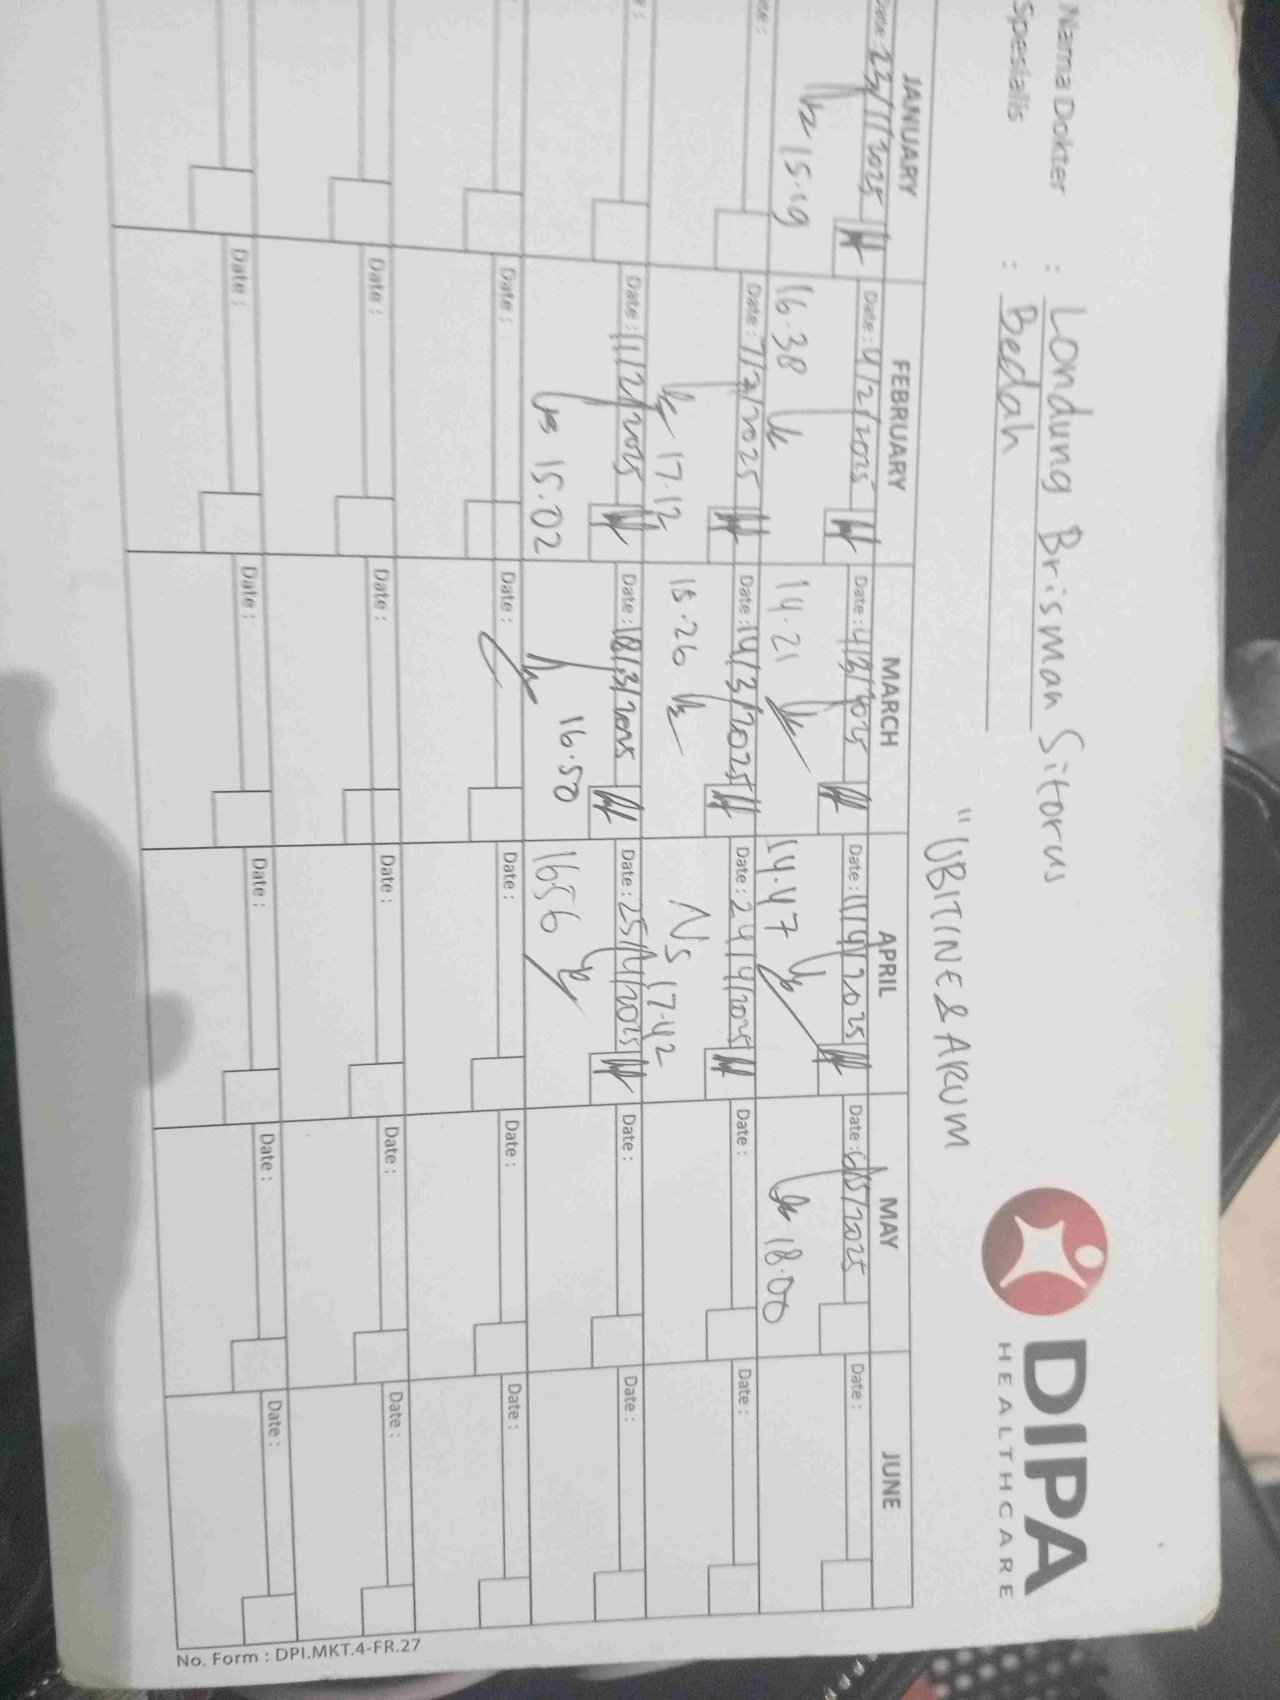 Nama Dokter : Londung Brisman Sitorus
Spesialis : Bedah
DIPA
HEALTHCARE
"UBITINE & ARUM
JANUARY FEBRUARY MARCH APRIL MAY JUNE
Date: 23/1/2025 Date: 4/2/2025 Date: 4/3/2025 Date: 11/4/2025 Date: 6/5/2025 Date:
15.19 16.38 14.21 14.47 18.00
Date: 7/2/2025 Date: 14/3/2025 Date: 24/4/2025 Date: Date:
17.12 15.26 Ns 17.42
Date: 11/2/2025 Date: 18/3/2025 Date: 25/4/2025 Date: Date:
15.02 16.50 1656
Date: Date: Date: Date: Date:
Date: Date: Date: Date: Date:
Date: Date: Date: Date: Date:
No. Form : DPI.MKT.4-FR.27